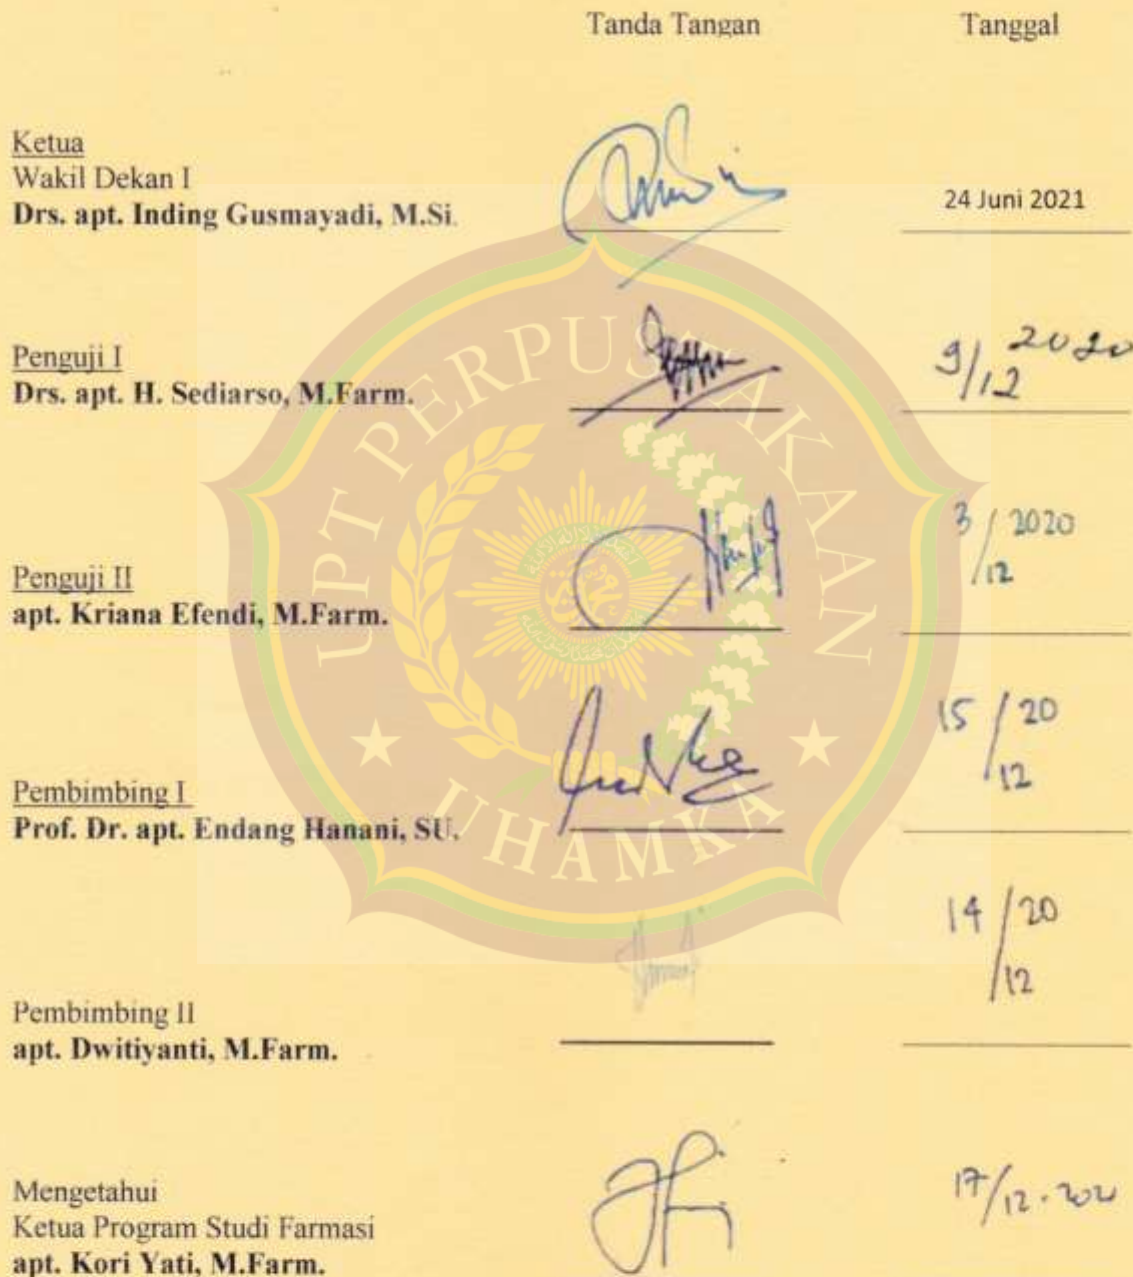 Tanda Tangan Tanggal
Ketua
Wakil Dekan I
Drs. apt. Inding Gusmayadi, M.Si.
24 Juni 2021
Penguji I
Drs. apt. H. Sediarso, M.Farm.
9/12 2020
Penguji II
apt. Kriana Efendi, M.Farm.
3/12 2020
Pembimbing I
Prof. Dr. apt. Endang Hanani, SU.
15/12 20
Pembimbing II
apt. Dwitiyanti, M.Farm.
14/12 20
Mengetahui
Ketua Program Studi Farmasi
apt. Kori Yati, M.Farm.
17/12.
UPT PERPUSTAKAAN
UHAMKA